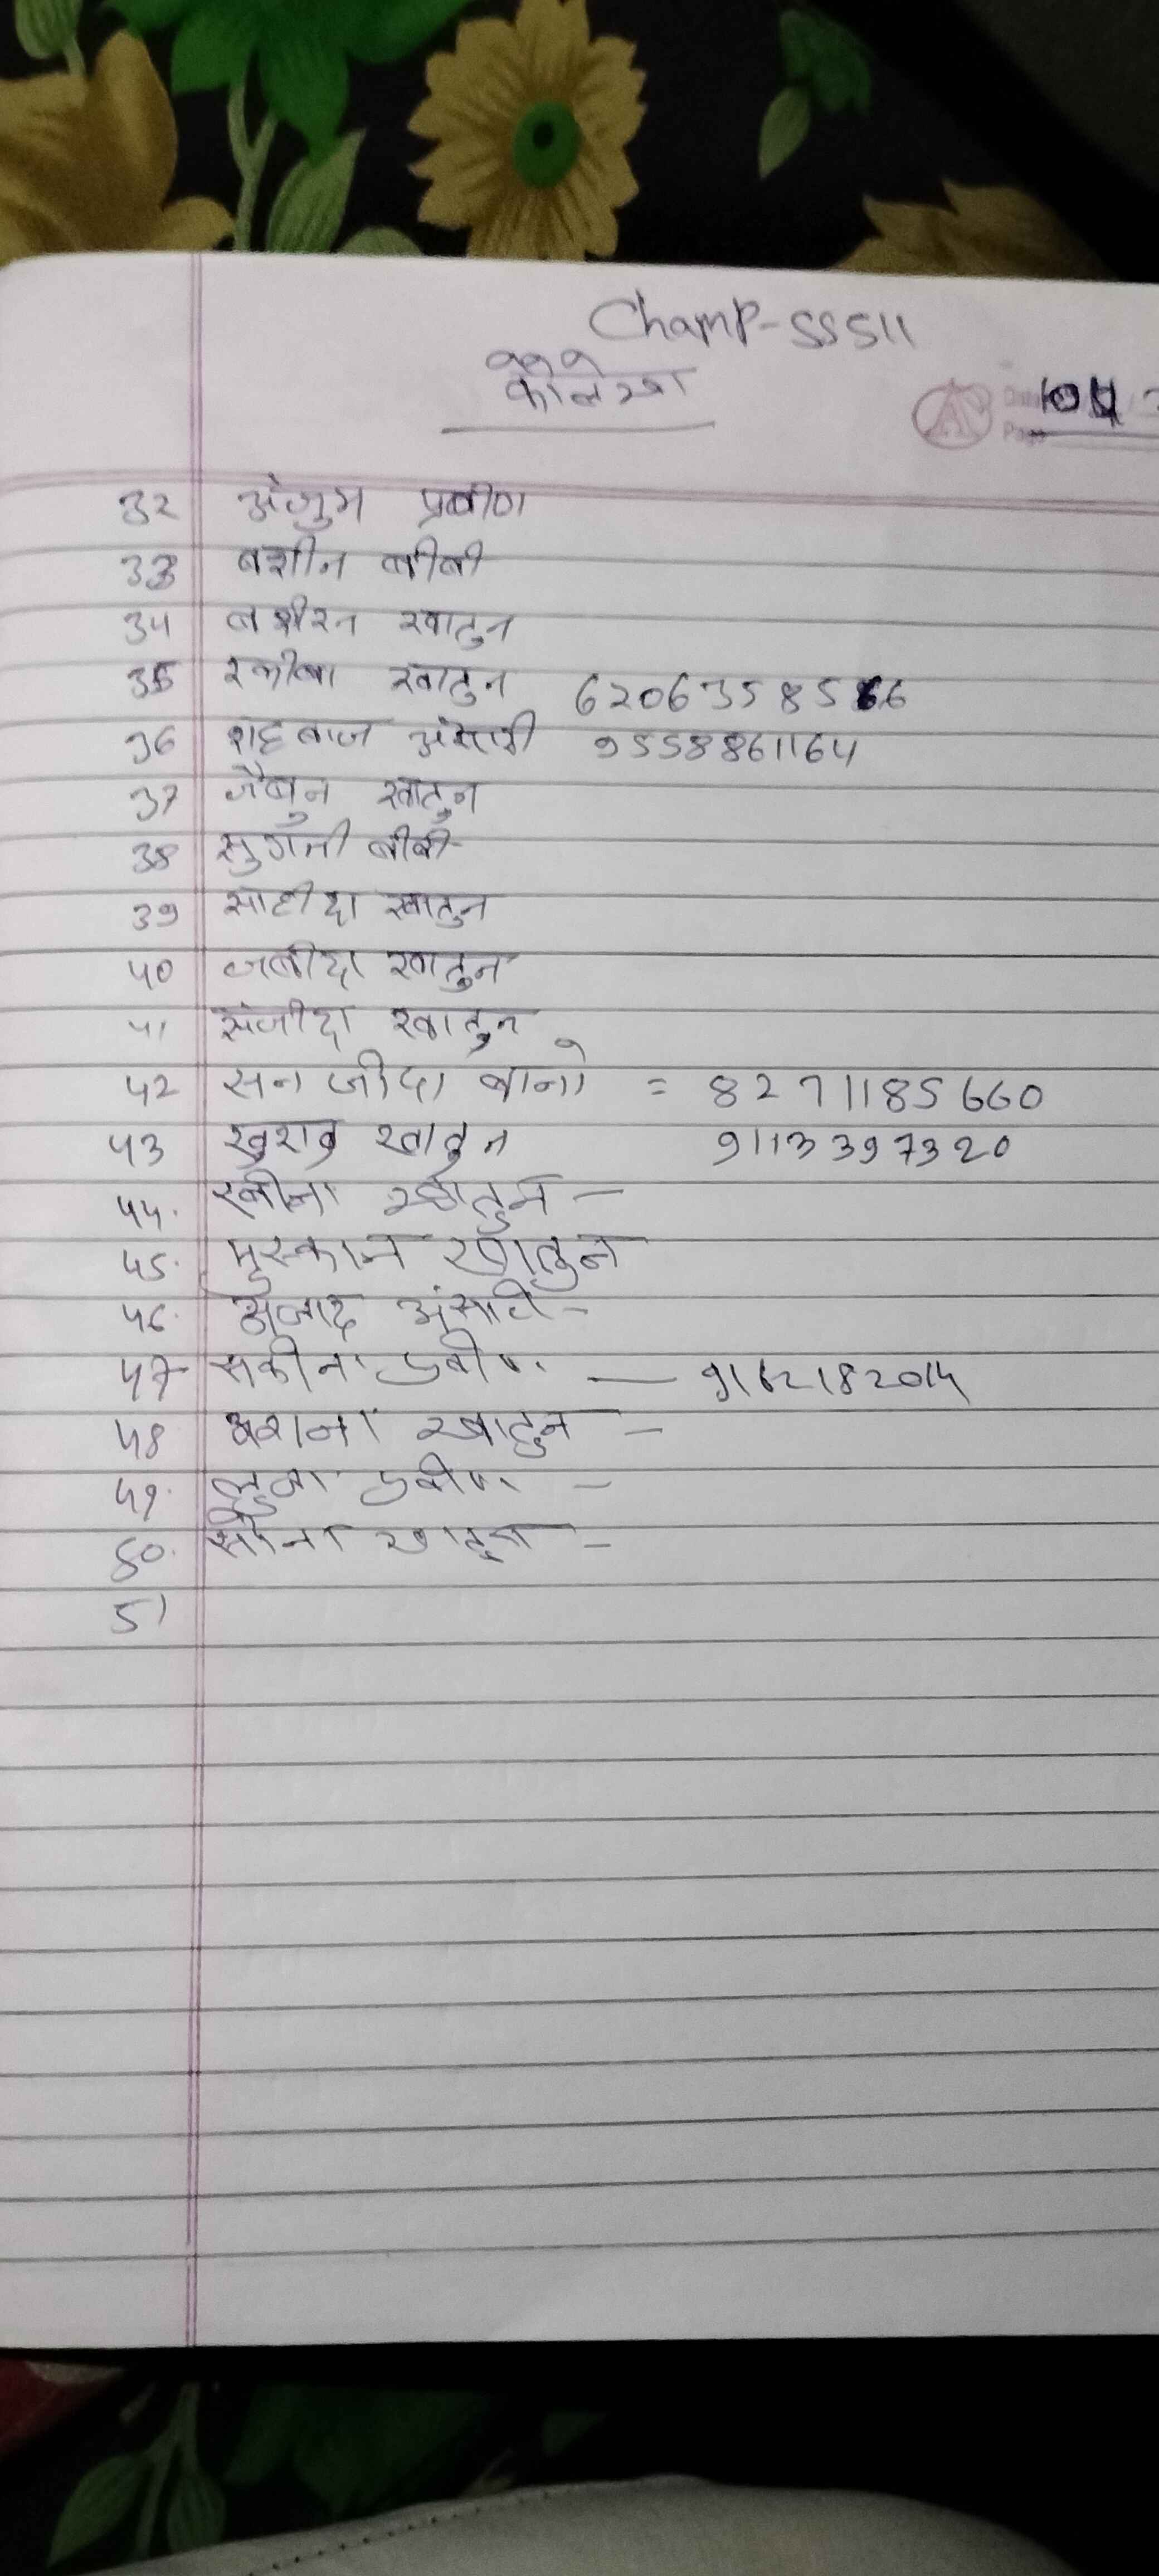 Champ-SS511
कोलेखा
104
32 अंजुम प्रवीण
33 बशीन बीबी
34 बशीरन खातुन
35 रकीबा खातुन 6206358566
36 शहबाज अंसारी 9558861164
37 जैबुन खातुन
38 सुगनी बीबी
39 साहीदा खातुन
40 जबीदा खातुन
41 संजीदा खातुन
42 सनजीदा बानो = 8271185660
43 खातुन 9113397320
44. खातुन –
45. मुस्कान खातुन
46. अजाद अंसारी –
47 सकीना प्रवीण — 9162182014
48 खातुन –
49. प्रवीण –
50. खातुन –
51